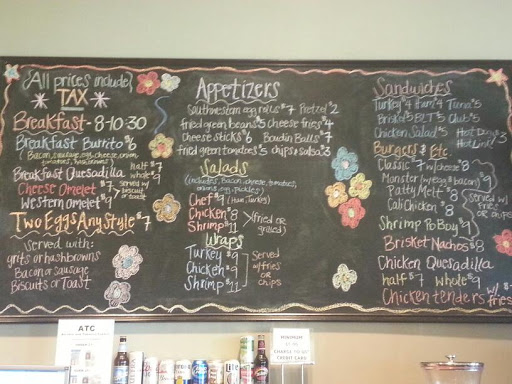 All prices include
TAX
Breakfast - 8-10:30
Breakfast Burrito $6
(Bacon, sausage, egg, cheese, onion,
tomatoes, hashbrowns)
Breakfast Quesadilla half $7 whole $9
Cheese Omelet $7
Western omelet $9
Served w/
biscuit
or toast
Two Eggs Any Style $7
Served with:
grits or hashbrowns
Bacon or sausage
Biscuits or Toast
Appetizers
Southwestern egg rolls $7 Pretzel $2
fried green beans $5 cheese fries $4
Cheese sticks $6 Boudin Balls $7
fried green tomatoes $5 chips & salsa $3
Salads
(includes, Bacon, cheese, tomatoes,
onions, egg, pickles)
Chef $9
Chicken $8
Shrimp $11
(fried or
grilled)
Wraps
Turkey $9
Chicken $9
Shrimp $11
Served
w/fries
or
chips
Sandwiches
Turkey $4 Ham $4 Tuna $5
Brisket $5 BLT $5 Club $5
Chicken Salad $5
Hot Dog $3
Burgers & Etc
Classic $7 w/cheese $8
Monster (w/egg & bacon) $9
Patty Melt $8
Cali Chicken $8
Shrimp Po Boy $9
Served
w/
fries
or chips
Brisket Nachos $8
Chicken Quesadilla
half $7 whole $9
Chicken tenders w/
fries
ATC
MINIMUM
CHARGE
CREDIT CARD